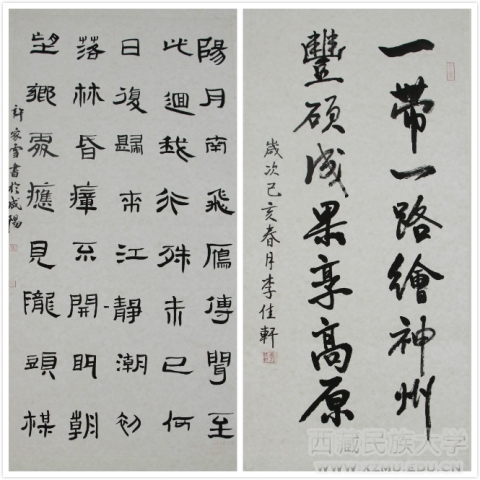 陽月南飛雁傳聞至
此迴我行殊未已何
日復歸来江靜潮初
落林昏瘴不開明朝
望鄉處應見隴頭梅
許家雪書於咸陽
一帶一路繪神州
豐碩成果享高原
歲次己亥春月李佳軒
西藏民族大学
WWW.XZMU.EDU.CN